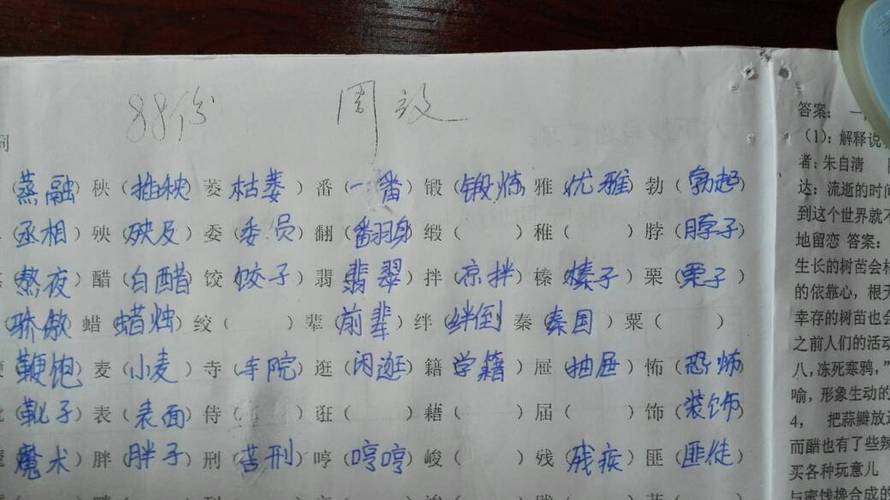 88份 周毅
词
(蒸融) 秧 (插秧) 菱 枯萎) 番 (一番) 锻 (锻炼) 雅 (优雅) 勃 (勃起)
丞相) 殃 (殃及) 委 (委员) 翻 (翻身) 缎 ( ) 稚 ( ) 脖 (脖子)
(熬夜) 醋 (白醋) 饺 (饺子) 翡 (翡翠) 拌 (凉拌) 榛 (榛子) 栗 (栗子)
(骄傲 蜡 (蜡烛) 绞 ( ) 辈 (前辈) 绊 (绊倒) 秦 (秦国) 粟 ( )
鞭 (鞭炮) 麦 (小麦) 寺 (寺院) 逛 (闲逛) 籍 (学籍) 屉 (抽屉) 怖 (恐怖)
(靴子) 表 (表面) 侍 ( ) 诳 ( ) 藉 ( ) 届 ( ) 饰 (装饰)
魔 (魔术) 胖 (胖子) 刑 (苦刑) 哼 (哼哼) 峻 ( ) 残 (残疾) 匪 (匪徒)
答案:
(1): 解释说
者: 朱自清
达: 流逝的时间
到这个世界就
地留恋 答案:
生长的树苗会
的依靠心, 根
幸存的树苗也会
之前人们的活动
八, 冻死寒鸦,"
喻, 形象生动的
4, 把蒜瓣放
而醋也有了些辣
买各种玩意儿